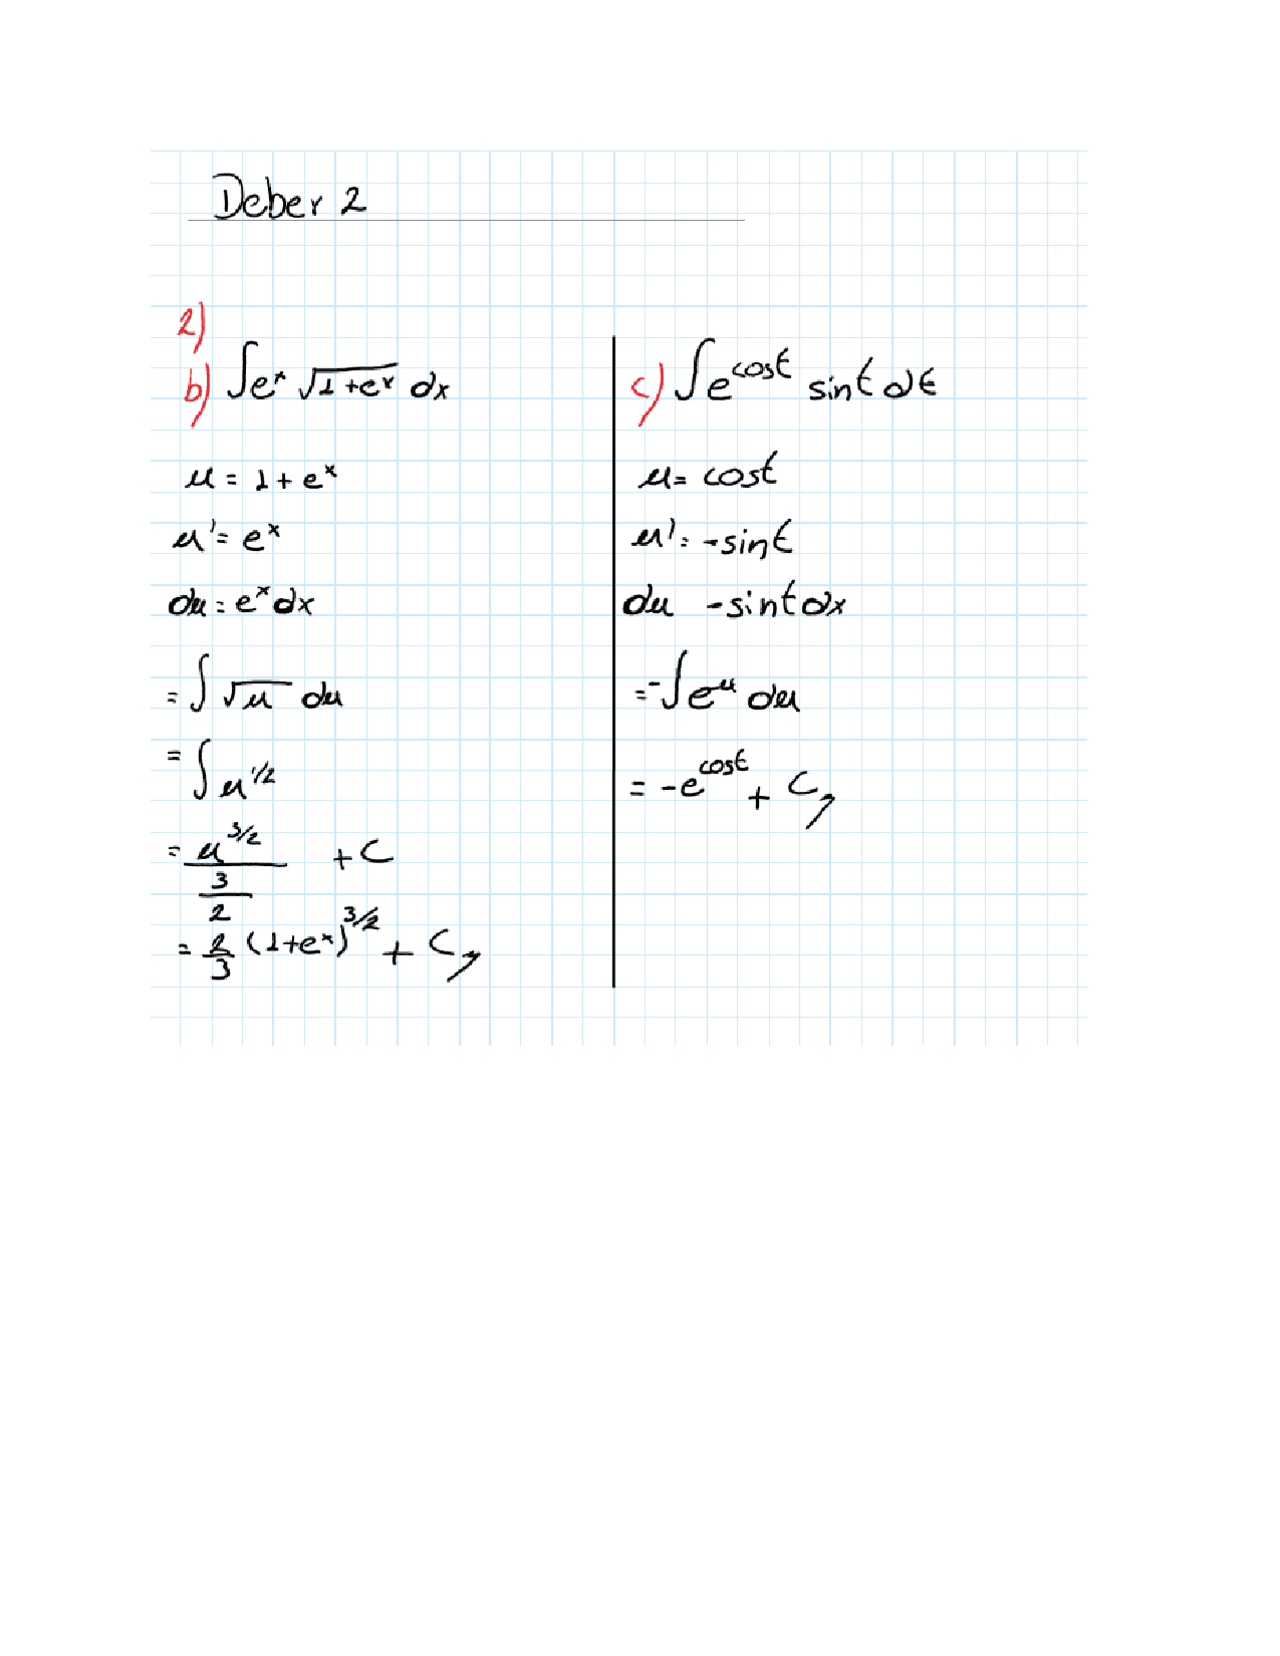 Deber 2
2)
b) ∫e^x √1+e^x dx
u = 1 + e^x
u' = e^x
du = e^x dx
= ∫ √u du
= ∫ u^1/2
= u^3/2 / (3/2) + C
= 2/3 (1+e^x)^3/2 + C,,
c) ∫e^cost sint dt
u = cost
u' = -sint
du -sint dx
= -∫e^u du
= -e^cost + C,,